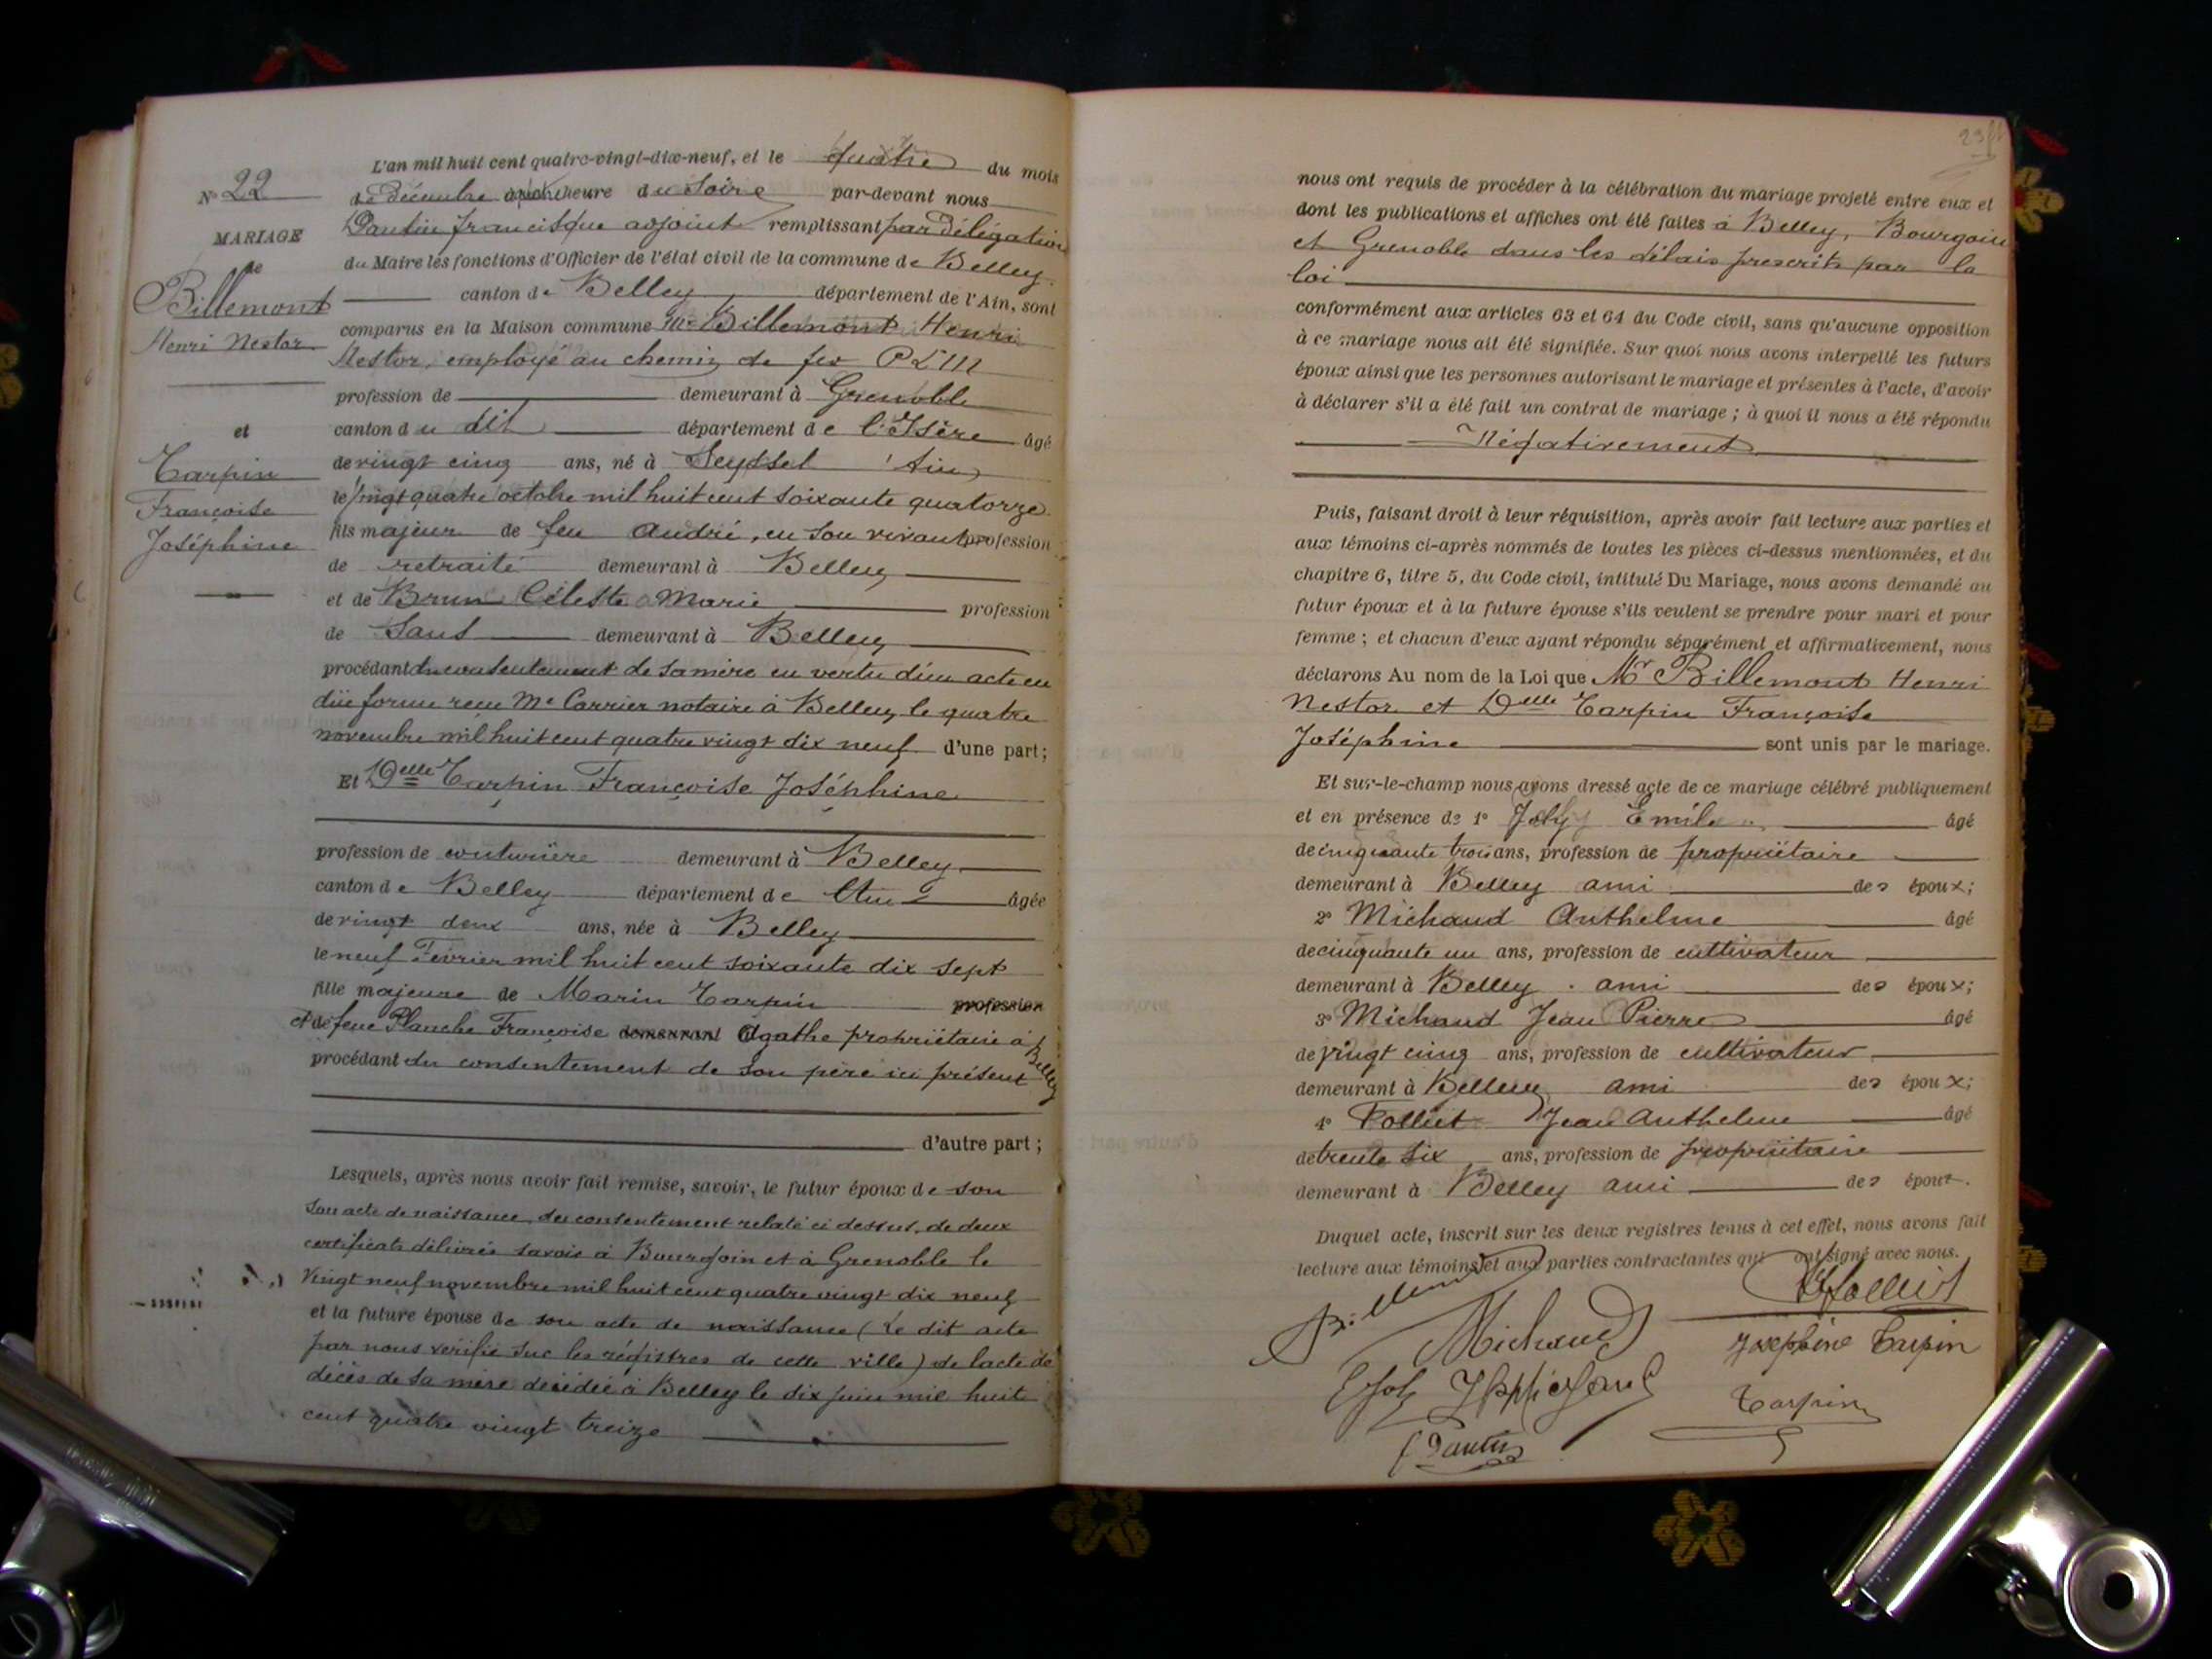 N° 22
MARIAGE
de
Billemont
Henri Nestor
et
Carpin
Françoise
Joséphine
L'an mil huit cent quatre-vingt-dix-neuf, et le quatre du mois
de Décembre à heure du Soire par-devant nous
Dantin francisque adjoint remplissant par Délégation
du Maire les fonctions d'Officier de l'état civil de la commune de Belley
canton de Belley département de l'Ain, sont
comparus en la Maison commune Mr Billemont Henri
Nestor, employé au chemin de fer PLM
profession de demeurant à Grenoble
canton du dit département de l'Isère âgé
de vingt cinq ans, né à Seyssel Ain
le vingt quatre octobre mil huit cent soixante quatorze
fils majeur de feu André, en son vivant profession
de retraité demeurant à Belley
et de Brun Céleste Marie profession
de Sans demeurant à Belley
procédant du consentement de sa mère en vertu d'un acte en
dûe forme reçu Me Carrier notaire à Belley le quatre
novembre mil huit cent quatre vingt dix neuf d'une part;
Et Delle Carpin Françoise Joséphine
profession de couturière demeurant à Belley
canton de Belley département de l'Ain âgée
de vingt deux ans, née à Belley
le neuf Février mil huit cent soixante dix sept
fille majeure de Marin Carpin profession
et de feue Planche Françoise demeurant Agathe propriétaire à Belley
procédant du consentement de son père ici présent
d'autre part;
Lesquels, après nous avoir fait remise, savoir, le futur époux de son
son acte de naissance, du consentement relaté ci dessus, de deux
certificats délivrés savoir à Bourgoin et à Grenoble le
vingt neuf novembre mil huit cent quatre vingt dix neuf
et la future épouse de son acte de naissance (le dit acte
par nous vérifié sur les régistres de cette ville) de l'acte de
décès de sa mère décédée à Belley le dix juin mil huit
cent quatre vingt treize
nous ont requis de procéder à la célébration du mariage projeté entre eux et
dont les publications et affiches ont été faites à Belley, Bourgoin
et Grenoble dans les délais prescrits par la
loi
conformément aux articles 63 et 64 du Code civil, sans qu'aucune opposition
à ce mariage nous ait été signifiée. Sur quoi nous avons interpellé les futurs
époux ainsi que les personnes autorisant le mariage et présentes à l'acte, d'avoir
à déclarer s'il a été fait un contrat de mariage; à quoi il nous a été répondu
Négativement
Puis, faisant droit à leur réquisition, après avoir fait lecture aux parties et
aux témoins ci-après nommés de toutes les pièces ci-dessus mentionnées, et du
chapitre 6, titre 5, du Code civil, intitulé Du Mariage, nous avons demandé au
futur époux et à la future épouse s'ils veulent se prendre pour mari et pour
femme; et chacun d'eux ayant répondu séparément et affirmativement, nous
déclarons Au nom de la Loi que Mr Billemont Henri
Nestor et Delle Carpin Françoise
Joséphine sont unis par le mariage.
Et sur-le-champ nous avons dressé acte de ce mariage célébré publiquement
et en présence de 1° Joly Emile âgé
de cinquante trois ans, profession de propriétaire
demeurant à Belley ami des époux;
2° Michaud Anthelme âgé
de cinquante un ans, profession de cultivateur
demeurant à Belley ami des époux;
3° Michaud Jean Pierre âgé
de vingt cinq ans, profession de cultivateur
demeurant à Belley ami des époux;
4° Folliet Jean Anthelme âgé
de trente six ans, profession de propriétaire
demeurant à Belley ami des époux.
Duquel acte, inscrit sur les deux registres tenus à cet effet, nous avons fait
lecture aux témoins et aux parties contractantes qui ont signé avec nous.
Billemont
Folliet
Michaud
Joséphine Carpin
E Joly
Carpin
f Dantin